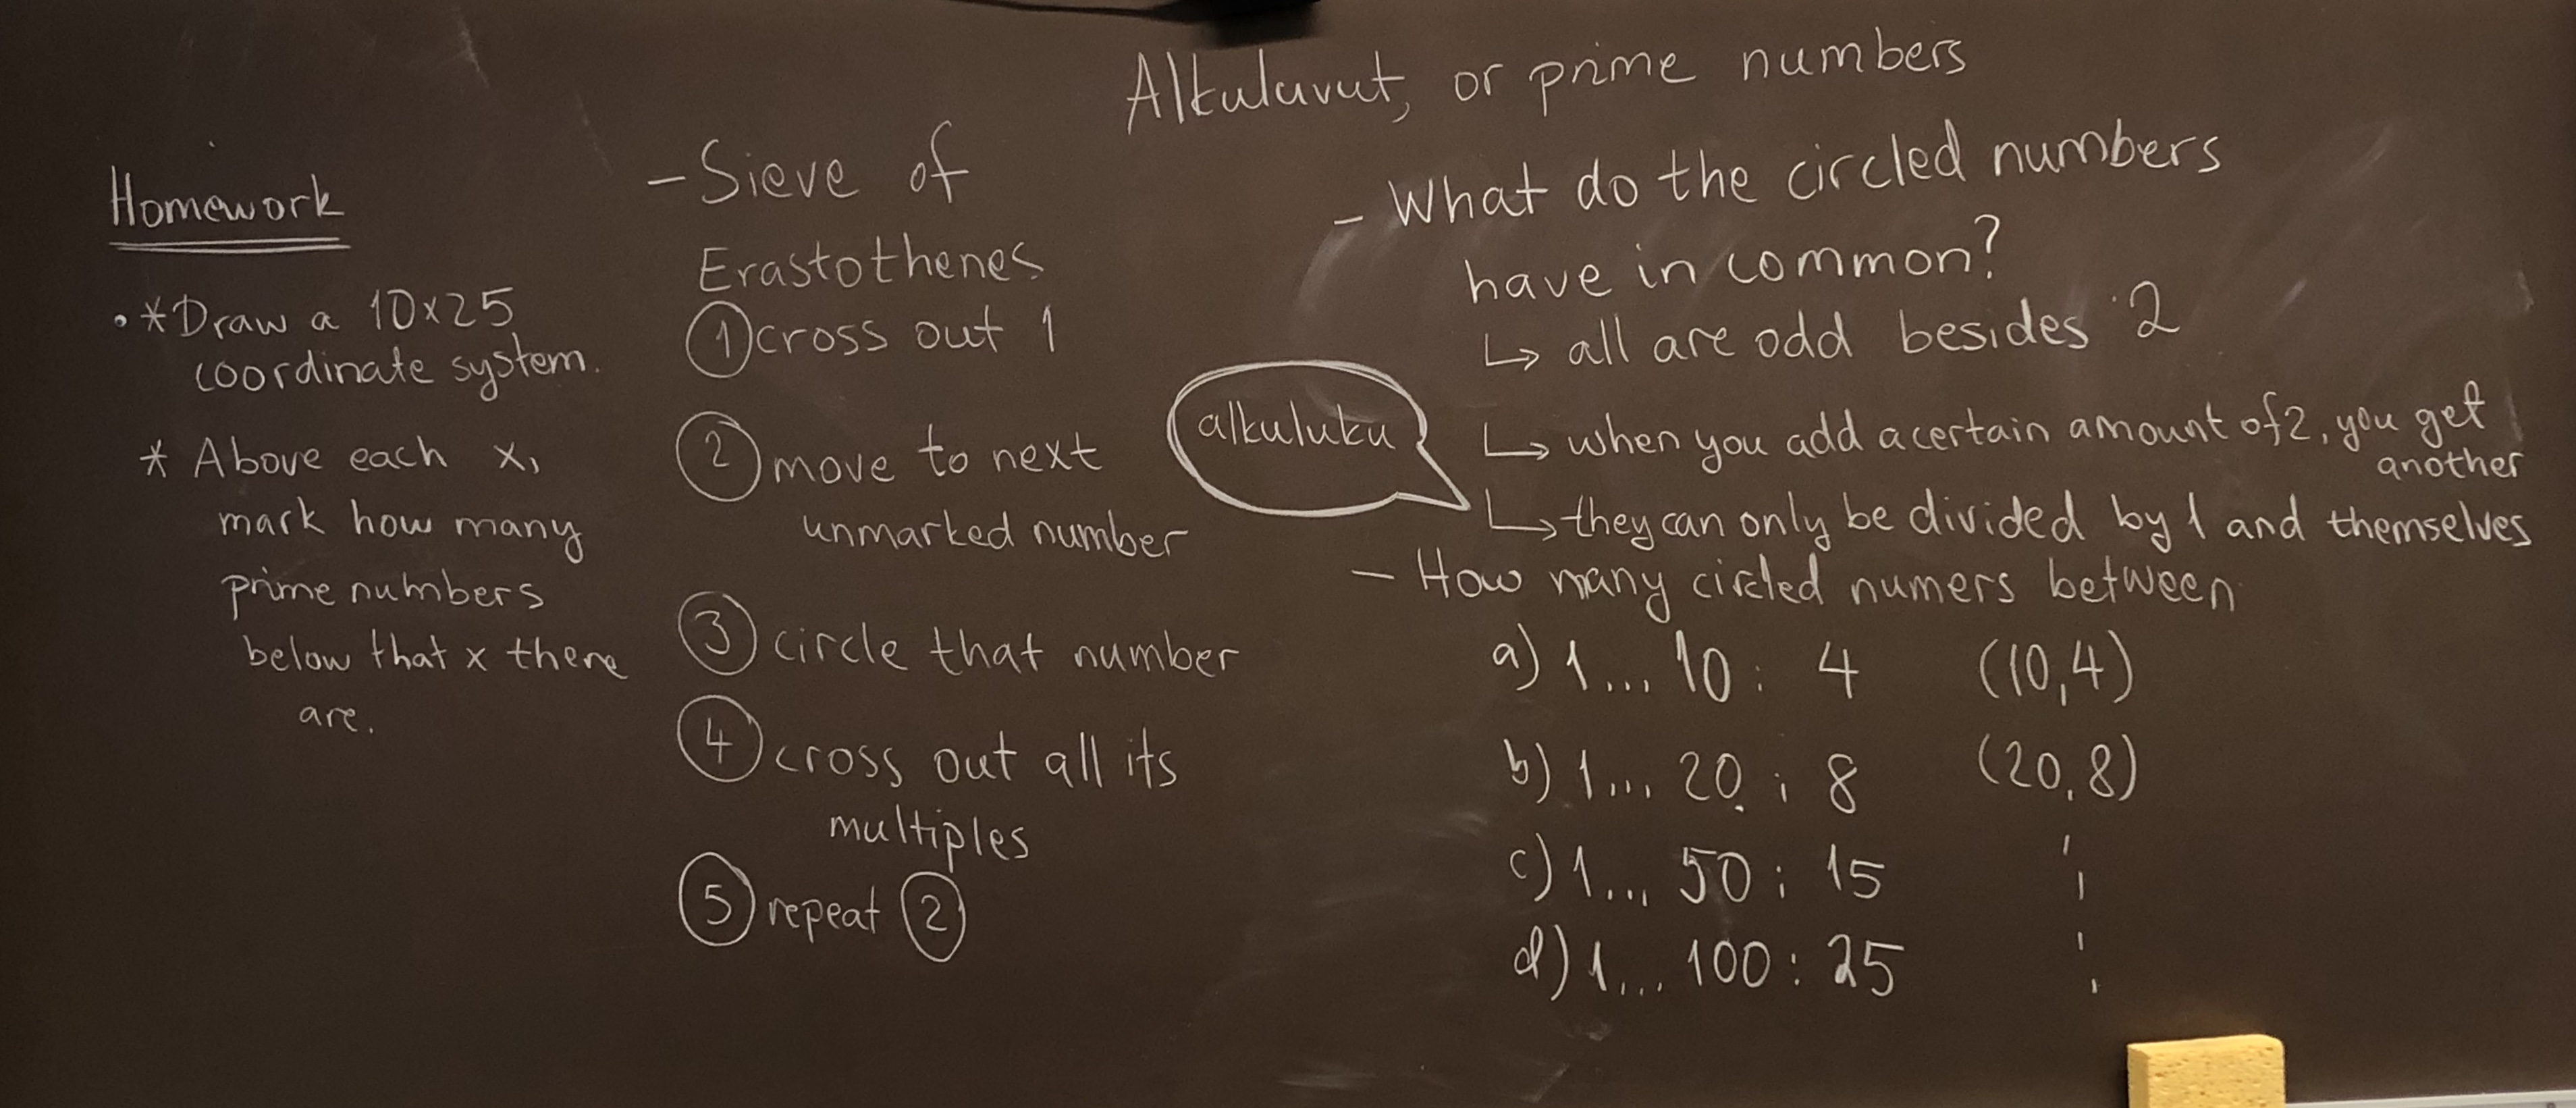 Alkuluvut, or prime numbers
Homework
• * Draw a 10x25
coordinate system.
* Above each x,
mark how many
prime numbers
below that x there
are.
- Sieve of
Erastothenes
① cross out 1
② move to next
unmarked number
③ circle that number
④ cross out all its
multiples
⑤ repeat ②
- What do the circled numbers
have in common?
↳ all are odd besides 2
↳ when you add a certain amount of 2, you get
another
alkuluku
↳ they can only be divided by 1 and themselves
- How many circled numers between
a) 1... 10: 4 (10,4)
b) 1... 20: 8 (20,8)
c) 1... 50: 15
d) 1... 100: 25